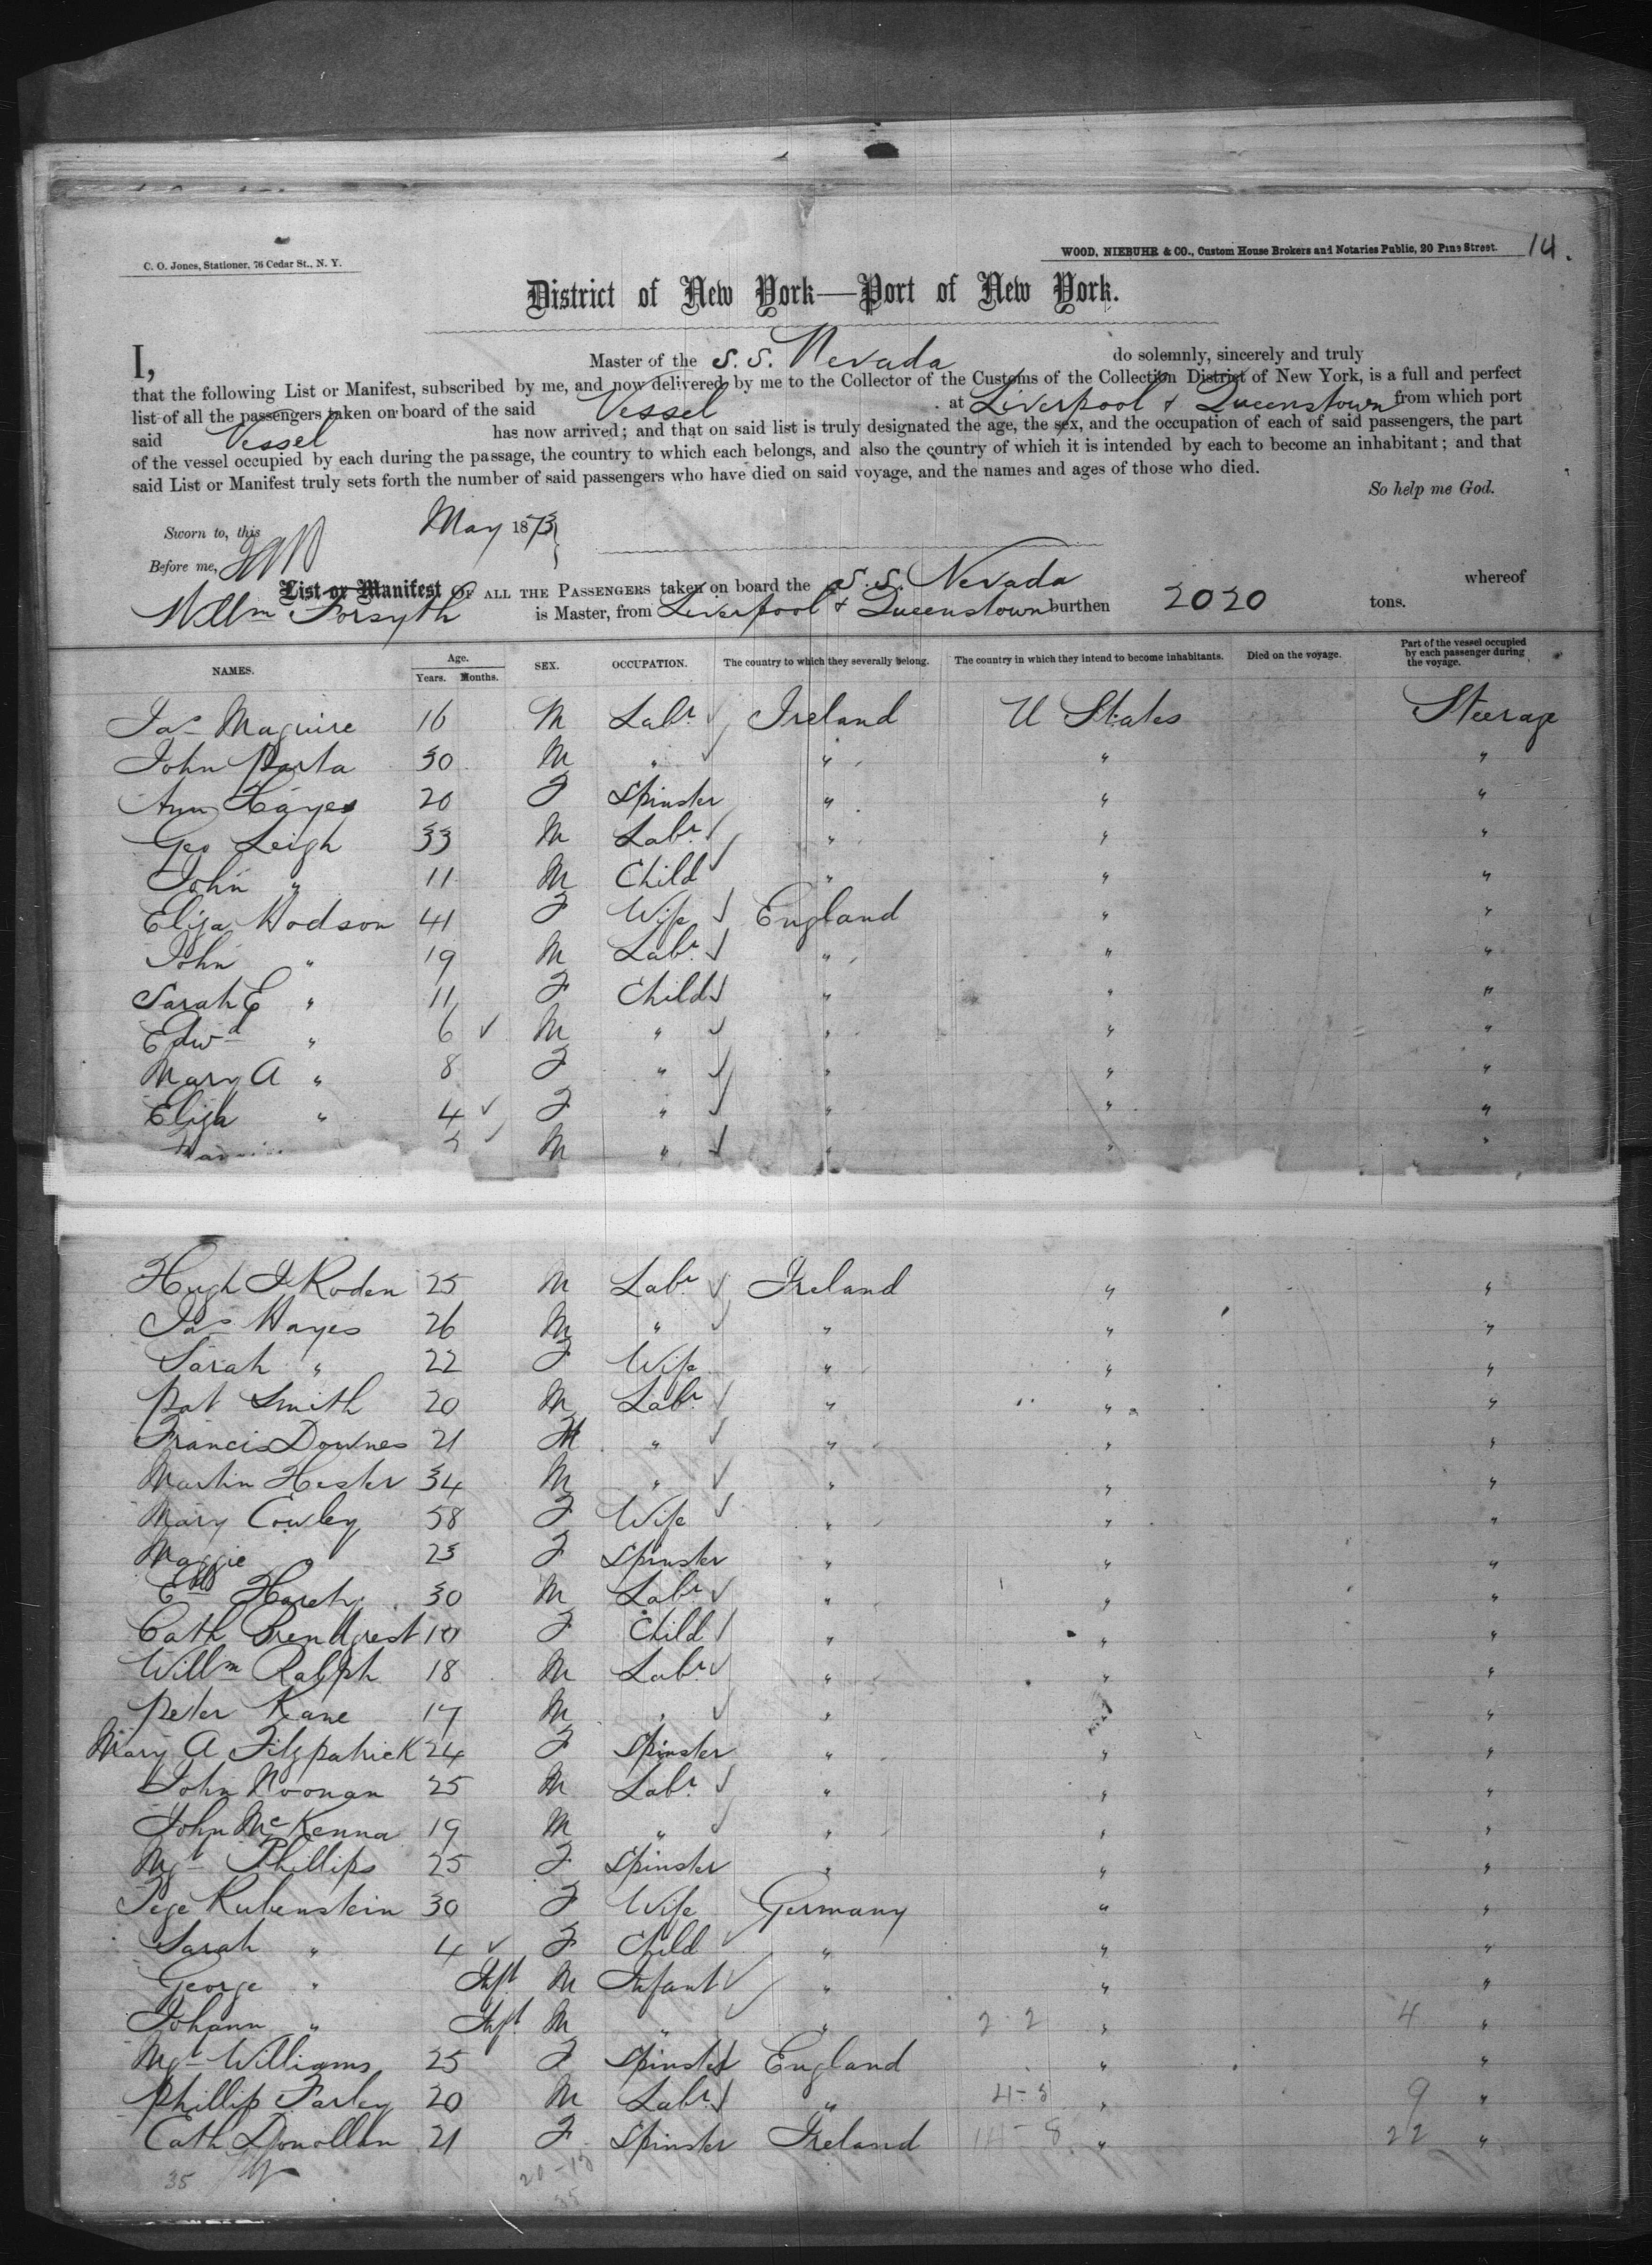 C. O. Jones, Stationer, 76 Cedar St., N. Y.
WOOD, NIEBUHR & CO., Custom House Brokers and Notaries Public, 20 Pine Street. 14.
District of New York—Port of New York.
I, Master of the S. S. Nevada do solemnly, sincerely and truly
that the following List or Manifest, subscribed by me, and now delivered by me to the Collector of the Customs of the Collection District of New York, is a full and perfect
list of all the passengers taken on board of the said Vessel at Liverpool & Queenstown from which port
said Vessel has now arrived; and that on said list is truly designated the age, the sex, and the occupation of each of said passengers, the part
of the vessel occupied by each during the passage, the country to which each belongs, and also the country of which it is intended by each to become an inhabitant; and that
said List or Manifest truly sets forth the number of said passengers who have died on said voyage, and the names and ages of those who died.
So help me God.
Sworn to, this May 1873
Before me,
List or Manifest OF ALL THE PASSENGERS taken on board the S. S. Nevada whereof
Willm Forsyth is Master, from Liverpool & Queenstown burthen 2020 tons.
NAMES. Age. Years. Months. SEX. OCCUPATION. The country to which they severally belong. The country in which they intend to become inhabitants. Died on the voyage. Part of the vessel occupied by each passenger during the voyage.
Jas Maguire 16 M Labr Ireland U States Steerage
John 30 M " " " "
Ann Hayes 20 F Spinster " " "
Geo Leigh 33 M Labr " " "
John " 11 M Child " " "
Eliza Hodson 41 F Wife England " "
John " 19 M Labr " " "
Sarah E " 11 F Child " " "
Edwd " 6 M " " " "
Mary A " 8 F " " " "
Eliza " 4 F " " " "
M " " " "
Hugh J Roden 25 M Labr Ireland " "
Jas Hayes 26 M " " " "
Sarah " 22 F Wife " " "
Pat Smith 20 M Labr " " "
Francis Downes 21 M " " " "
Martin Hester 34 M " " " "
Mary Cowley 58 F Wife " " "
Maggie " 23 F Spinster " " "
30 M Labr " " "
Cath 10 F Child " " "
Willm Ralph 18 M Labr " " "
Peter Kane 17 M " " " "
Mary A Fitzpatrick 24 F Spinster " " "
John Noonan 25 M Labr " " "
John McKenna 19 M " " " "
Mgt Phillips 25 F Spinster " " "
Rubenstein 30 F Wife Germany " "
Sarah " 4 F Child " " "
George " Inft. M Infant " " "
Johann " Inft. M " " 2-2 " 4 "
Mgt Williams 25 F Spinster England " "
Phillip Farley 20 M Labr " 4-5 " 9 "
Cath Donollan 21 F Spinster Ireland 14-8 " 22 "
35 20-15
35